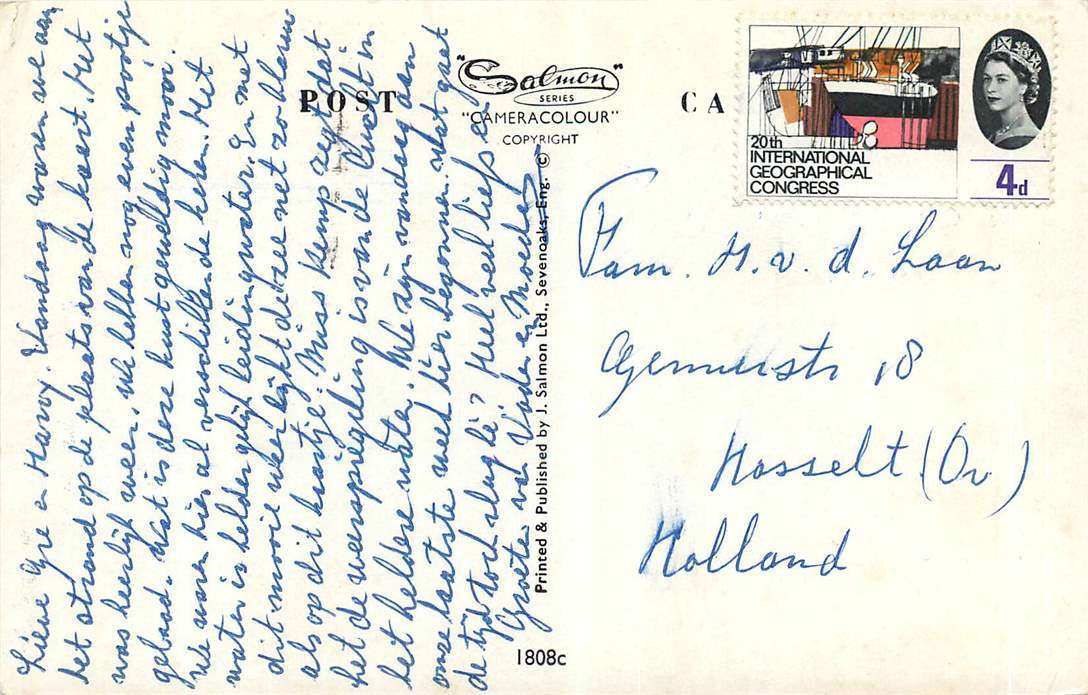 Lieve Gre en Harry. Vandaag waren we aan
het strand op de plaats van de kaart. Het
was heerlijk weer. We hebben nog even pootje
gebaad. Wat is deze kust geweldig mooi.
We waren hier al verschillende keren. Het
water is helder gelijk leidingwater. En met
dit mooie weer lijkt de zee net zo blauw
als op dit kaartje. Miss Kemp zegt dat
het de weerspiegeling is van de lucht in
het heldere water. We zijn vandaag aan
onze laatste week hier begonnen. Wat gaat
de tijd toch vlug hè? Heel veel liefs en
Groeten van Vader en Moeder
POST CA
"Salmon"
SERIES
"CAMERACOLOUR"
COPYRIGHT
Printed & Published by J. Salmon Ltd., Sevenoaks, Eng. ©
1808c
20th
INTERNATIONAL
GEOGRAPHICAL
CONGRESS
4d
Fam. H. v. d. Laan
18
Hasselt (Ov)
Holland